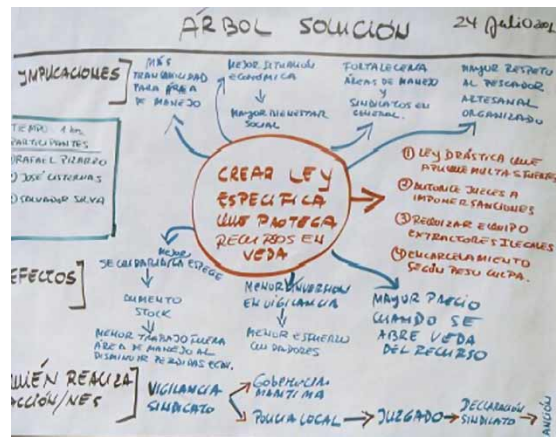 ÁRBOL SOLUCIÓN
24 Julio
IMPLICACIONES
MÁS
TRANQUILIDAD
PARA ÁREA
DE MANEJO
MEJOR SITUACIÓN
ECONÓMICA
MAYOR BIENESTAR
SOCIAL
FORTALECERÍA
ÁREAS DE MANEJO
Y
SINDICATOS EN
GENERAL.
MAYOR RESPETO
AL PESCADOR
ARTESANAL
ORGANIZADO
TIEMPO 1 hr.
PARTICIPANTES
RAFAEL PIZARRO
JOSÉ CISTERNAS
SALVADOR SILVA
CREAR LEY
ESPECÍFICA
QUE PROTEGA
RECURSOS EN
VEDA
① LEY DRÁSTICA QUE
APLIQUE MULTAS FUERTES
② AUTORICE JUECES A
IMPONER SANCIONES
③ REQUIZAR EQUIPO
EXTRACTORES ILEGALES
④ ENCARCELAMIENTO
SEGÚN PESO CULPA.
EFECTOS
MEJOR
AUMENTO
STOCK
MENOR TRABAJO FUERA
ÁREA DE MANEJO AL
DISMINUIR PERDIDAS ECON.
MENOR INVERSION
EN VIGILANCIA
MENOR ESFUERZO
CUIDADORES
MAYOR PRECIO
CUANDO SE
ABRE VEDA
DEL RECURSO
QUIÉN REALIZA
ACCIÓN/NES
VIGILANCIA
SINDICATO
GOBERNACIÓN
MARÍTIMA
POLICIA LOCAL
JUZGADO
DECLARACIÓN
SINDICATO